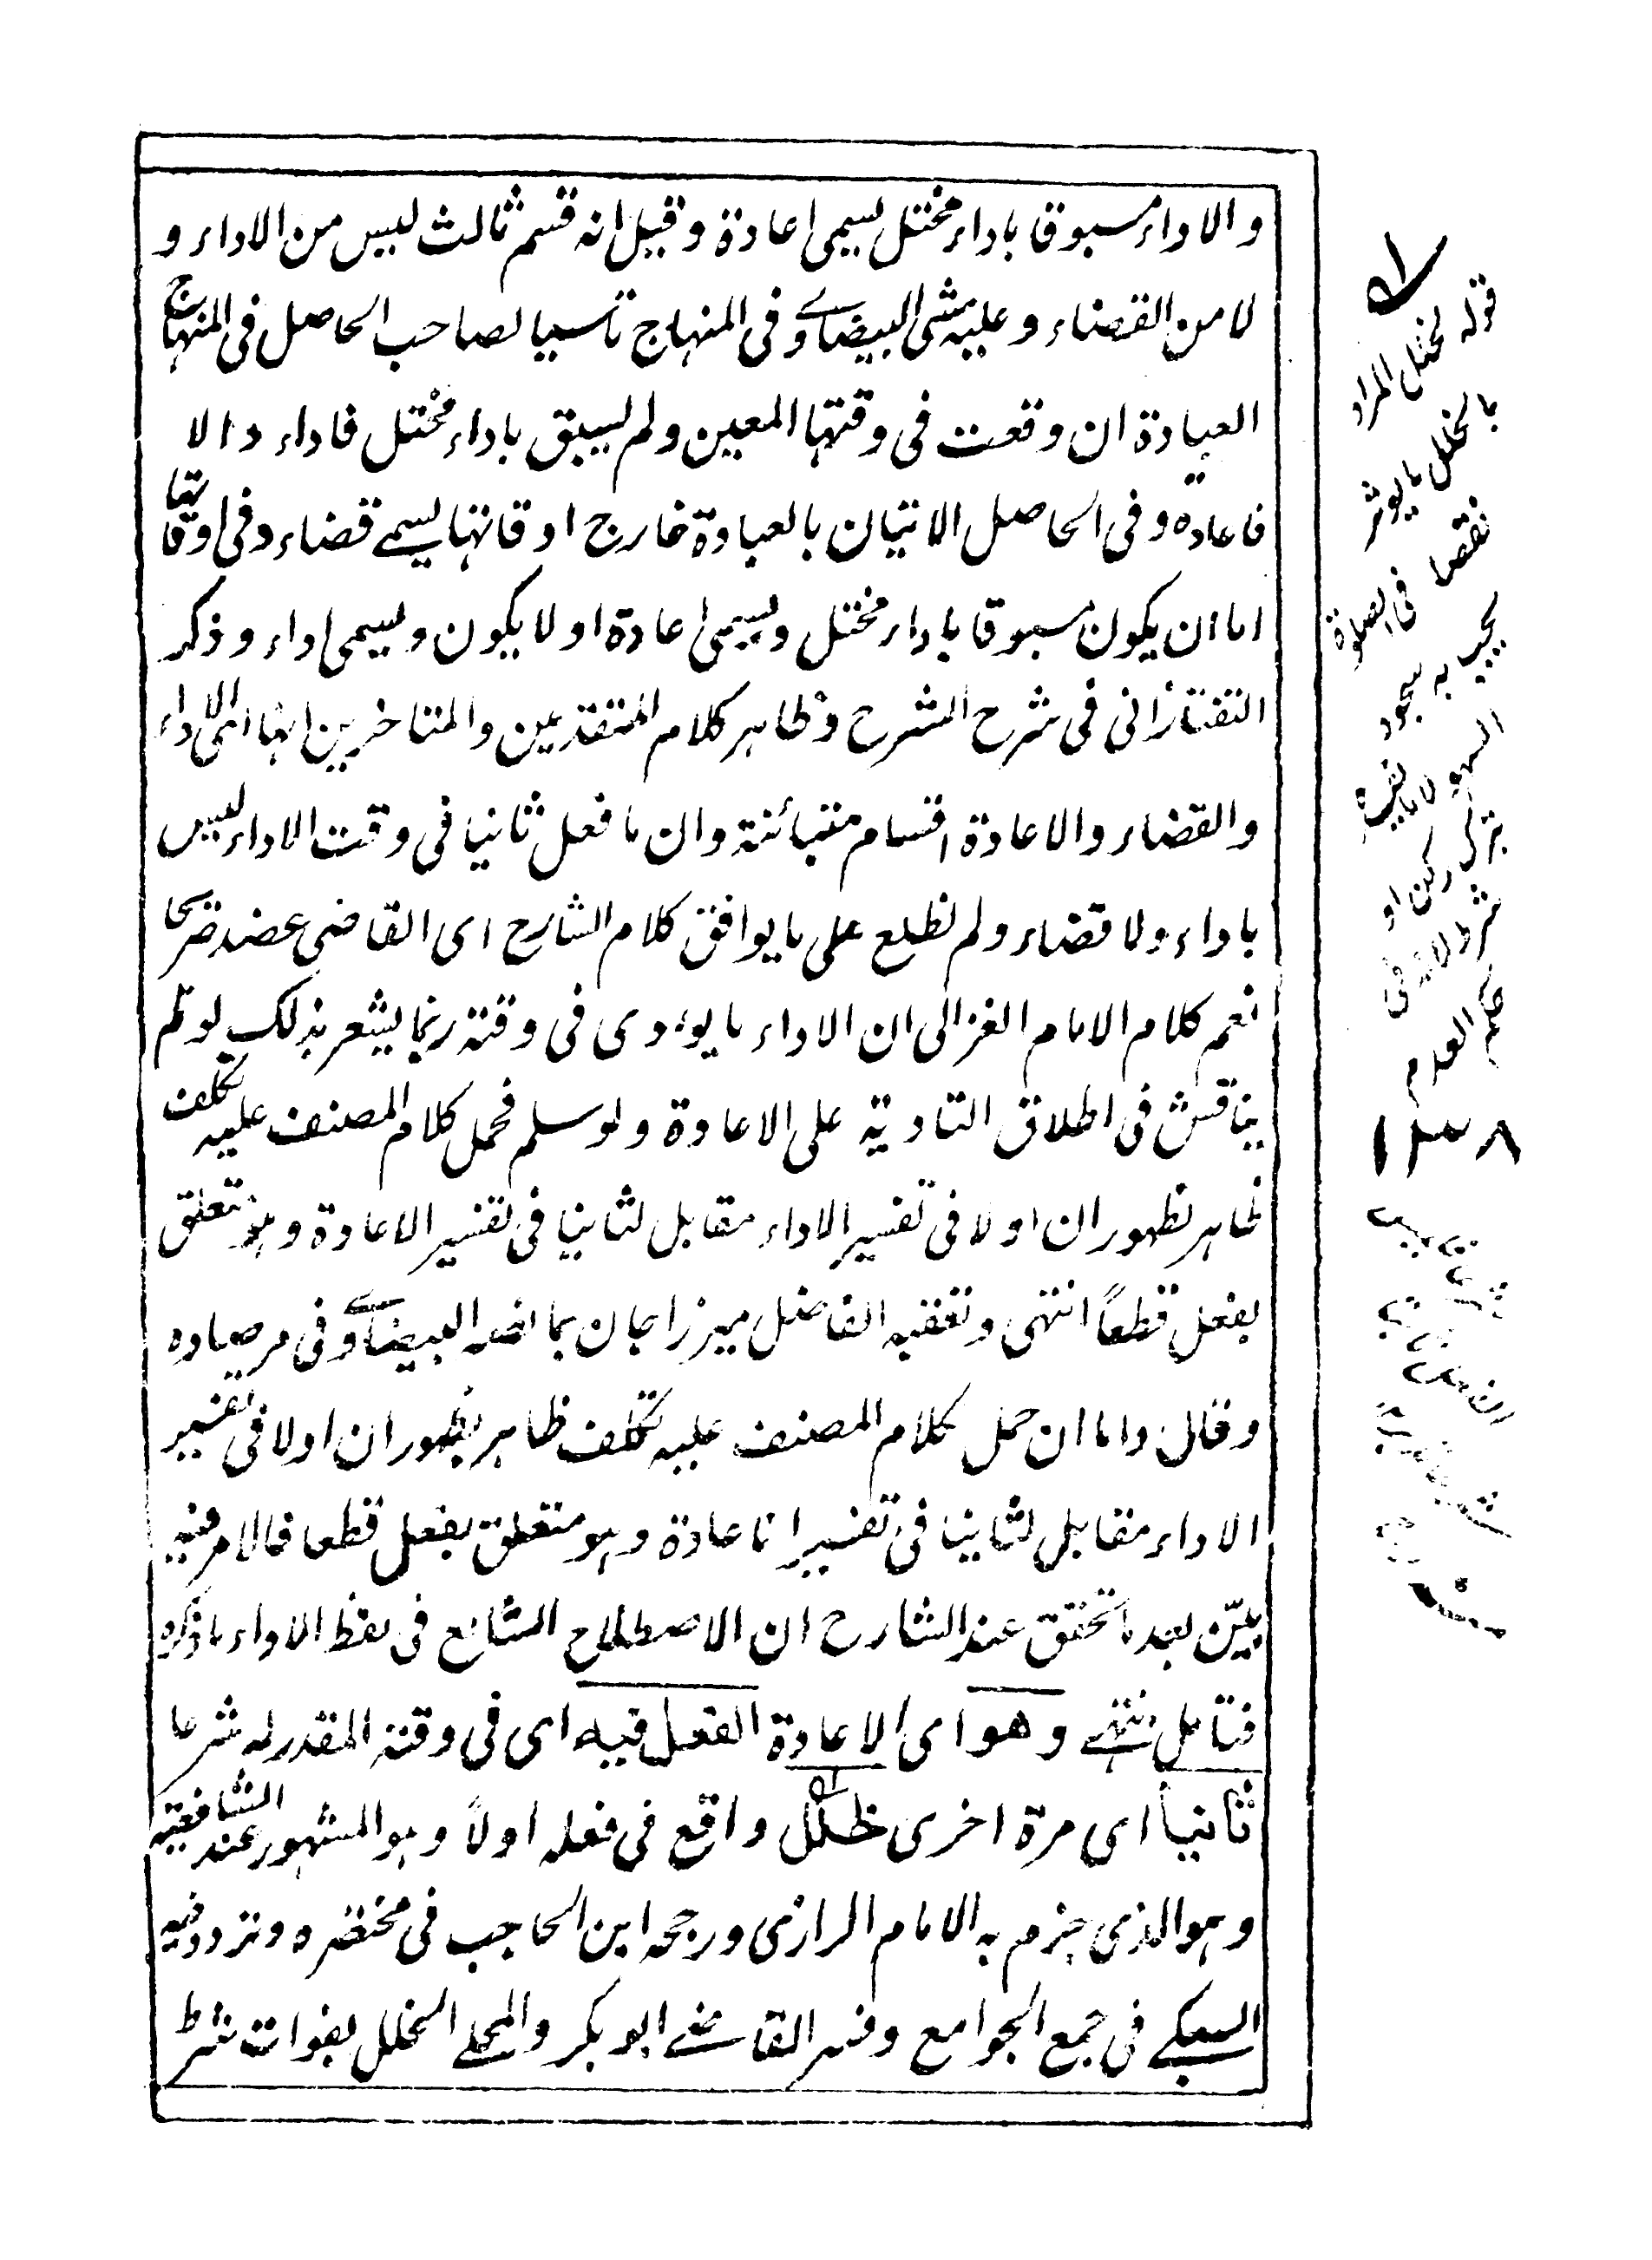 والاداء مسبوقا باداء مختل يسمى اعادة وقيل انه قسم ثالث ليس من الاداء و
لا من القضاء وعليه مشى البيضاوي فى المنهاج تاسيا لصاحب الحاصل فى المنهاج
العبادة ان وقعت فى وقتها المعين ولم يسبق باداء مختل فاداء والا
فاعادة وفى الحاصل الاتيان بالعبادة خارج اوقاتها يسمى قضاء وفى اوقاتها
اما ان يكون مسبوقا باداء مختل ويسمى اعادة او لا يكون ويسمى اداء وذكر
التفتازانى فى شرح الشرح وظاهر كلام المتقدمين والمتاخرين انها اى الاداء
والقضاء والاعادة اقسام متبائنة وان ما فعل ثانيا فى وقت الاداء ليس
باداء ولا قضاء ولم نطلع على ما يوافق كلام الشارح اى القاضى عضد صريحا
نعم كلام الامام الغزالى ان الاداء ما يؤدى فى وقته ربما يشعر بذلك لو لم
يناقش فى اطلاق التادية على الاعادة ولو سلم فحمل كلام المصنف عليه تكلف
ظاهر لظهور ان اولا فى تفسير الاداء مقابل لثانيا فى تفسير الاعادة وهو متعلق
بفعل قطعاً انتهى وتعقبه الفاضل ميرزاجان بما البيضاوي فى مرصاده
وقال واما ان حمل كلام المصنف عليه تكلف ظاهر لظهور ان اولا فى تفسير
الاداء مقابل لثانيا فى تفسير الاعادة وهو متعلق بفعل قطعا فالامر فيه
بيّن بعد ما تحقق عند الشارح ان الاصطلاح الشائع فى لفظ الاداء ما ذكره
فتامل انتهى وهو اى الاعادة الفعل فيه اى فى وقته المقدر له شرعا
ثانياً اى مرة اخرى لخلل واقع فى فعله اولاً وهو المشهور عند الشافعية
وهو الذى جزم به الامام الرازى ورجحه ابن الحاجب فى مختصره وتردد فيه
السبكى فى جمع الجوامع وفسر القاضى ابو بكر والمحلى الخلل بفوات شرط
قوله لخلل المراد
بالخلل ما يوثر
نقصا فى الصلوة
يجب به سجود
السهو لا ما
بترك ركن او
شرط لانه فى
حكم العدم
١٣٨